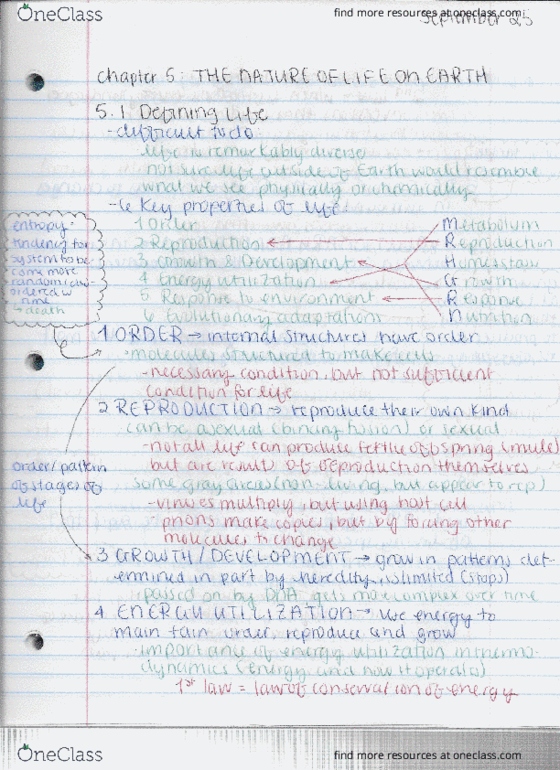 OneClass
find more resources at oneclass.com
September 25
chapter 5: THE NATURE OF LIFE ON EARTH
5.1 Defining Life
-difficult to do
life is remarkably diverse
not sure life outside of Earth would resemble
what we see physically or chemically
-6 Key properties of life
1 Order
2 Reproduction
3 Growth & Development
4 Energy utilization
5 Response to environment
6 Evolutionary adaptations
Metabolism
Reproduction
Homeostasis
Growth
Response
Nutrition
entropy-
tendency for
system to be-
come more
random/dis-
ordered w
time
→ death
1 ORDER → internal structures have order
·molecules structured to make cells
-necessary condition, but not sufficient
condition for life
2 REPRODUCTION → reproduce their own kind
can be asexual (binary fission) or sexual
-not all life can produce fertile offspring (mule)
but are result of reproduction themselves
some gray areas (non-living, but appear to rep)
-viruses multiply, but using host cell
prions make copies, but by forcing other
molecules to change
order/pattern
of stages of
life
3 GROWTH/DEVELOPMENT → grow in patterns det-
ermined in part by heredity, is limited (stops)
·passed on by DNA gets more complex over time
4 ENERGY UTILIZATION → use energy to
maintain order, reproduce and grow
·importance of energy utilization in thermo-
dynamics (energy and how it operates)
1st law = law of conservation of energy
OneClass
find more resources at oneclass.com